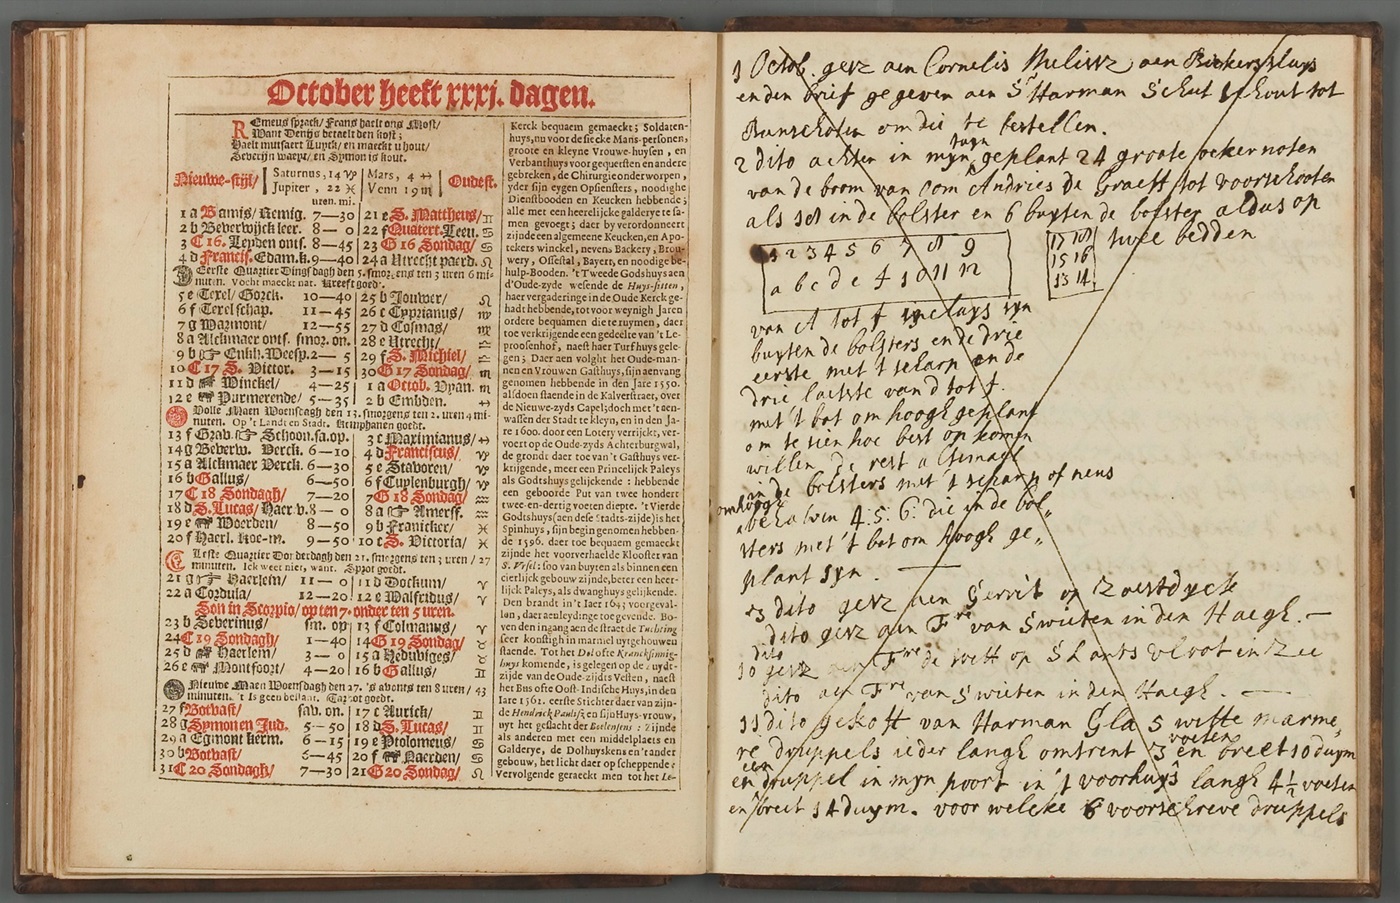 October heeft xxxj. dagen.
REmeus sprack/ Frans haelt ons Most/
Want Denijs betaelt den kost;
Haelt mutsaert Luyck/ en maeckt u hout/
Severijn waeyt/ en Symon is kout.
Nieuwe-stijl/
Saturnus, 14 ♑
Jupiter, 22 ♓
Mars, 4 ↔
Venn 19 ♏
Oudest.
uren. mi.
1 a Bamis/ Remig. 7—30
2 b Beverwijck leer. 8— 0
3 C 16. Leyden onts. 8—45
4 d Francis. Edam.k. 9—40
21 e S. Mattheus/ ♊
22 f Quatert. Leeu. ♋
23 G 16 Sondag/ ♋
24 a Utrecht paerd. ♌
Eerste Quartier Dingsdagh den 5. smorgens ten 3 uren 6 mi-
nuten. Vocht maeckt nat. Kreeft goed.
5 e Texel/ Gorck. 10—40
6 f Texel schap. 11—45
7 g Warmont/ 12—55
8 a Alckmaer onts. smor. on.
9 b Enkh. Weesp. 2— 5
10 C 17 S. Victor. 3—15
11 d Winckel/ 4—25
12 e Purmerende/ 5—35
25 b Jouwer/ ♌
26 c Cyprianus/ ♍
27 d Cosmas/ ♍
28 e Utrecht/ ♎
29 f S. Michiel/ ♎
30 G 17 Sondag/ ♏
1 a Octob. Vyan. ♏
2 b Embden. ↔
Volle Maen Woensdagh den 13. smorgens ten 2. uren 4 mi-
nuten. Op 't Landt en Stadt. Nimphanen goedt.
13 f Grav. Schoon.sa.op.
14 g Beverw. Verck. 6—10
15 a Alckmaer Verck. 6—30
16 b Gallus/ 6—50
17 C 18 Sondagh/ 7—20
18 d S. Lucas/ Haer v. 8— 0
19 e Woerden/ 8—50
20 f Haerl. Koe-m. 9—50
3 c Maximianus/ ↔
4 d Franciscus/ ♑
5 e Stavoren/ ♑
6 f Cuylenburgh/ ♑
7 G 18 Sondag/ ♒
8 a Amersf. ♒
9 b Franicker/ ♓
10 c S. Victoria/ ♓
Leste Quartier Donderdagh den 21. smorgens ten 3 uren / 27
minuten. Ick weet niet, want. Sprot goedt.
21 g Haerlem/ 11— 0
22 a Cordula/ 12—20
11 d Dockum/ ♈
12 e Walfridus/ ♈
Son in Scorpio/ op ten 7. onder ten 5 uren.
23 b Severinus/ sm. op
24 C 19 Sondagh/ 1—40
25 d Haerlem/ 3— 0
26 e Montfoort/ 4—20
13 f Colmanus/ ♈
14 G 19 Sondag/ ♉
15 a Heduwiges/ ♉
16 b Gallus/ ♊
Nieuwe Maen Woensdagh den 27. 's avonts ten 8 uren/ 43
minuten. 't Is geen bestant. Tarbot goedt.
27 f Botvast/ sav. on.
28 g Symon en Jud. 5—50
29 a Egmont kerm. 6—15
30 b Botvast/ 6—45
31 C 20 Sondagh/ 7—30
17 c Aurick/ ♊
18 d S. Lucas/ ♊
19 e Ptolomeus/ ♋
20 f Naerden/ ♋
21 G 20 Sondag/ ♌
Kerck bequaem gemaeckt; Soldaten-
huys, nu voor de siecke Mans-personen,
groote en kleyne Vrouwe-huysen, en
Verbanthuys voor gequetsten en andere
gebreken, de Chirurgie onderworpen,
yder sijn eygen Opsiensters, noodighe
Dienstbooden en Keucken hebbende;
alle met een heerelijcke galderye te sa-
men gevoegt; daer by verordonneert
zijnde een algemeene Keucken, en Apo-
tekers winckel, nevens Backery, Brou-
wery, Ossestal, Bayert, en noodige be-
hulp-Booden. 't Tweede Godshuys aen
d'Oude-zyde wesende de Huys-sitten,
haer vergaderinge in de Oude Kerck ge-
hadt hebbende, tot voor weynigh Jaren
ordere bequamen die te ruymen, daer
toe verkrijgende een gedeelte van 't Le-
proosenhof, naest haer Turfhuys gele-
gen; Daer aen volght het Oude-man-
nen en Vrouwen Gasthuys, sijn aenvang
genomen hebbende in den Jare 1550.
alsdoen staende in de Kalverstraet, over
de Nieuwe-zyds Capel; doch met 't aen-
wassen der Stadt te kleyn, en in den Ja-
re 1600. door een Lotery verrijckt, ver-
voert op de Oude-zyds Achterburgwal,
de grondt daer toe van 't Gasthuys ver-
krijgende, meer een Princelijck Paleys
als Godtshuys gelijckende: hebbende
een geboorde Put van twee hondert
twee-en-dertig voeten diepte. 't Vierde
Godtshuys (aen dese Stadts-zijde) is het
Spinhuys, sijn begin genomen hebben-
de 1596. daer toe bequaem gemaeckt
zijnde het voorverhaelde Klooster van
S. Ursel: soo van buyten als binnen een
cierlijck gebouw zijnde, beter een heer-
lijck Paleys, als dwanghuys gelijckende.
Den brandt in 't Iaer 1643 voorgeval-
lan, daer aen leydinge toe gevende. Bo-
ven den ingang aen de straet de Tuchting
seer konstigh in marmel uytgehouwen
staende. Tot het Dol ofte Kranckfinnig-
huys komende, is gelegen op de Zuydt-
zijde van de Oude-zijdts Vesten, naest
het Bus ofte Oost-Indische Huys, in den
Iare 1561. eerste Stichter daer van zijn-
de Hendrick Paulisz en sijn Huys-vrouw,
uyt het geslacht der Boelensens: Zijnde
als anderen met een middelplaets en
Galderye, de Dolhuyskens en 't ander
gebouw, het licht daer op scheppende;
vervolgens geraeckt men tot het Le-
1 Octob. gesz aen Cornelis aen Bickerssluys
enden brief gegeven aen Sr Harman Schut tot
Bunschoten om die te bestellen.
2 dito achten in myn tuyn geplant 24 groote ockernoten
van de boom van oom Andries De Graeff tot voorschooten
als 18 in de bolster en 6 buyten de bolster aldus op
1 2 3 4 5 6 7 8 9
a b c d e f 10 11 12
17 18
15 16
13 14
twee bedden
van A tot f incluys syn
buyten de bolsters ende drie
eerste met 't scharp en de
drie laetste van d tot f.
met 't bot om hoogh geplant
om te sien hoe best op komen
willen de rest alsemael
in de bolsters met 't scharp of neus
omhoogh
behalven 4. 5. 6. die in de bol„
sters met 't bot om hoogh ge„
plant syn.
3 dito gesz aen Gerrit op Zoestdyck
dito gesz aen Fre van Swieten in den Haegh.
10 dito gesz aen Fre de Witt op S Lants vloot in Zee
dito aen Fre van Swieten in den Haegh.
11 dito gekoft van Harman Gla 5 witte marme„
re druppels ieder langh omtrent 3 voeten en breet 10 duym
een
en druppel in myn poort in 't voorhuys langh 4½ voeten
en breet 14 duym. voor welcke 6 voorschreve druppels